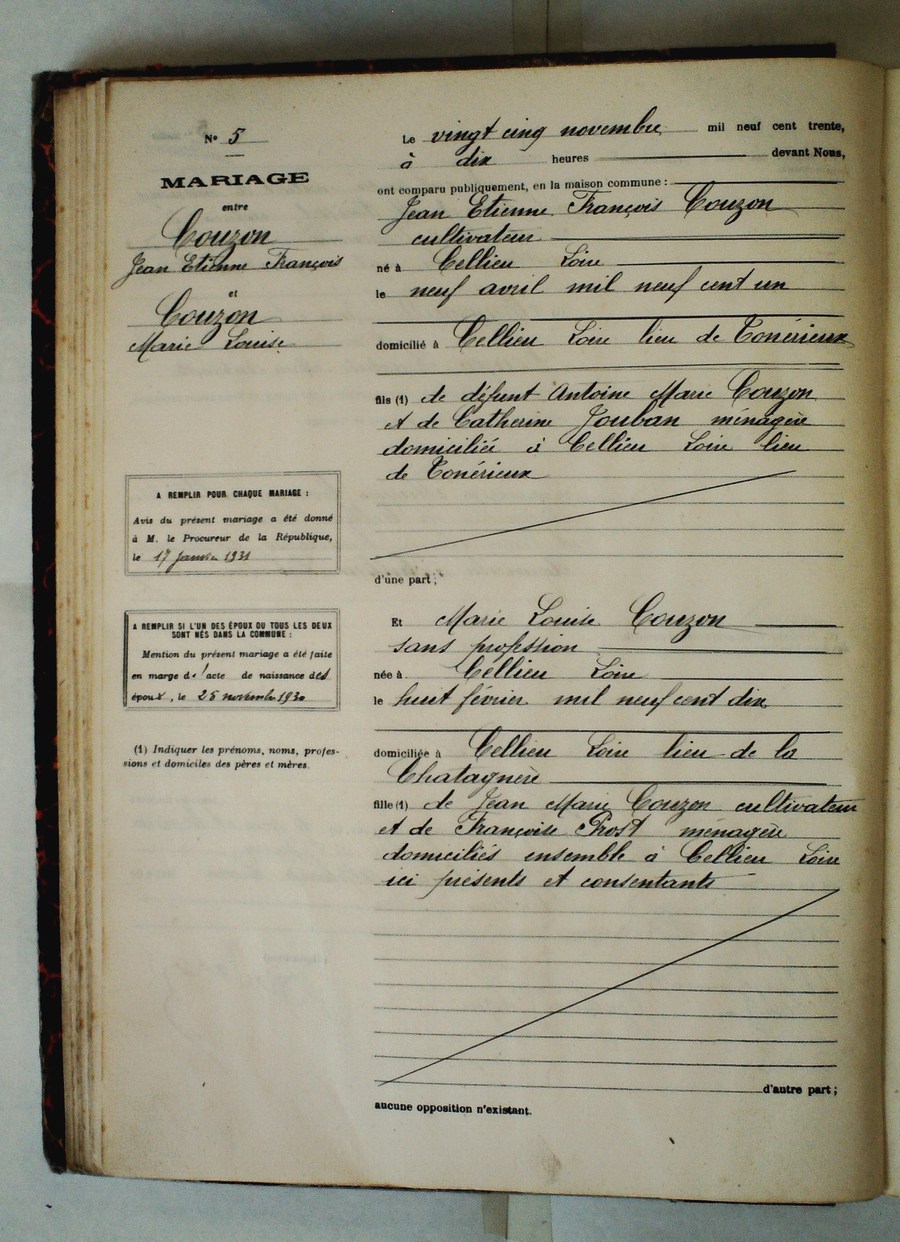 N° 5
MARIAGE
entre
Couzon
Jean Etienne François
et
Couzon
Marie Louise
A REMPLIR POUR CHAQUE MARIAGE :
Avis du présent mariage a été donné
à M. le Procureur de la République,
le 17 Janvier 1931
A REMPLIR SI L'UN DES ÉPOUX OU TOUS LES DEUX
SONT NÉS DANS LA COMMUNE :
Mention du présent mariage a été faite
en marge de l'acte de naissance des
époux, le 25 novembre 1930
(1) Indiquer les prénoms, noms, profes-
sions et domiciles des pères et mères.
Le vingt cinq novembre mil neuf cent trente,
à dix heures devant Nous,
ont comparu publiquement, en la maison commune :
Jean Etienne François Couzon
cultivateur
né à Cellieu Loire
le neuf avril mil neuf cent un
domicilié à Cellieu Loire lieu de Conérieux
fils (1) de défunt Antoine Marie Couzon
et de Catherine Jouban ménagère
domiciliée à Cellieu Loire lieu
de Conérieux
d'une part ;
Et Marie Louise Couzon
sans profession
née à Cellieu Loire
le huit février mil neuf cent dix
domiciliée à Cellieu Loire lieu de la
Chatagnère
fille (1) de Jean Marie Couzon cultivateur
et de Françoise Prost ménagère
domiciliés ensemble à Cellieu Loire
ici présents et consentants
d'autre part ;
aucune opposition n'existant.